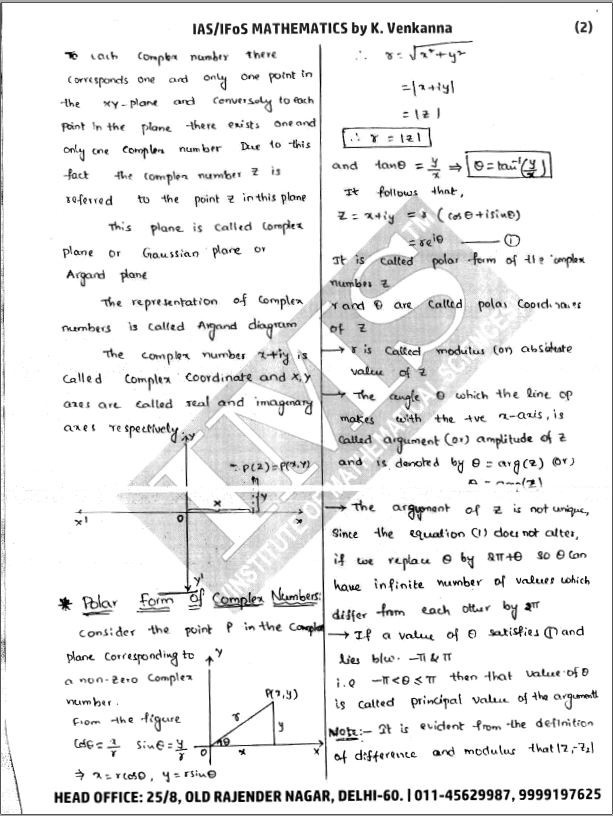 IAS/IFoS MATHEMATICS by K. Venkanna
(2)
To each Complex number there
Corresponds one and only one point in
the XY-plane and Conversely to each
Point in the plane there exists one and
only one Complex number Due to this
fact the Complex number Z is
referred to the point Z in this plane
This plane is Called Complex
plane or Gaussian plane or
Argand plane
The representation of Complex
numbers is Called Argand diagram
The Complex number x+iy is
Called Complex Coordinate and x,y
axes are called real and imaginary
axes respectively.
y
P(z)=P(x,y)
x
y
x'
O
x
y'
* Polar Form of Complex Numbers:
Consider the point P in the Complex
plane Corresponding to
a non-zero Complex
number.
From the figure
Cosθ = x/r Sinθ = y/r
⇒ x = rcosθ, y = rsinθ
y
P(x,y)
r
y
θ
O
x
x
∴ r = √x²+y²
= |x+iy|
= |z|
∴ r = |z|
and tanθ = y/x ⇒ θ = tan⁻¹(y/x)
It follows that,
Z = x+iy = r (cosθ+isinθ)
= re^iθ — (1)
It is Called polar form of the complex
number Z
r and θ are Called polar Coordinates
of Z
→ r is Called modulus (or) absolute
value of Z
→ The angle θ which the line op
makes with the +ve x-axis, is
Called argument (or) amplitude of Z
and is denoted by θ = arg(z) (or)
θ = amp(z)
→ The argument of Z is not unique,
Since the equation (1) does not alter,
if we replace θ by 2π+θ so θ Can
have infinite number of values which
differ from each other by 2π
→ If a value of θ satisfies (1) and
lies b/w. -π & π
i.e -π<θ≤π then that value of θ
is called principal value of the argument
Note:- It is evident from the definition
of difference and modulus that |z₁-z₂|
IMS
TM
INSTITUTE OF MATHEMATICAL SCIENCES
HEAD OFFICE: 25/8, OLD RAJENDER NAGAR, DELHI-60. | 011-45629987, 9999197625